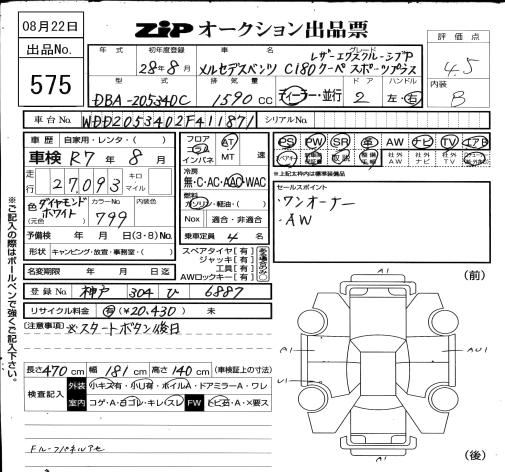 08月22日
ZiP オークション出品票
出品No.
575
年式 初年度登録 車名 グレード
28年8月 メルセデスベンツ C180 クーペ レザーエクスクルーシブP スポーツプラス
型式 排気量 ドア ハンドル
DBA-205340C 1590 cc ディーラー・並行 2 左・右
評価点
4.5
内装
B
車台No. WDD2053402F411871 シリアルNo.
車歴 自家用・レンタ・( )
車検 R7年8月
走行 27,093 キロ マイル
色(元色) ダイヤモンドホワイト カラーNo. 799 内装色
予備検 年 月 日(3・8)No.
形状 キャンピング・放送・事務室・( )
名変期限 年 月 日迄
フロア コラム インパネ AT MT 速
冷房 無・C・AC・AAC・WAC
燃料 ガソリン・軽油・( )
Nox 適合・非適合
乗車定員 4 名
スペアタイヤ[有]
ジャッキ[有]
工具[有]
AWロックキー[有]
PS PW SR 革 AW ナビ TV エアB
社外AW 社外ナビ 社外TV
※上記太枠内は標準装備品
セールスポイント
・ワンオーナー
・AW
登録No. 神戸 304 ひ 6887
リサイクル料金 有(¥20,430) 未
(注意事項) ※スタートボタン後日
※ご記入の際はボールペンで強くご記入下さい。
長さ470cm 幅181cm 高さ140cm (車検証上の寸法)
検査記入 外装 小キズ有・小凹有・ボイルA・ドアミラーA・ワレ
室内 コゲ・A・白コレ・キレ・スレ FW トビ石・A・×要ス
(前)
A1
A1
AU1
U1
A1
(後)